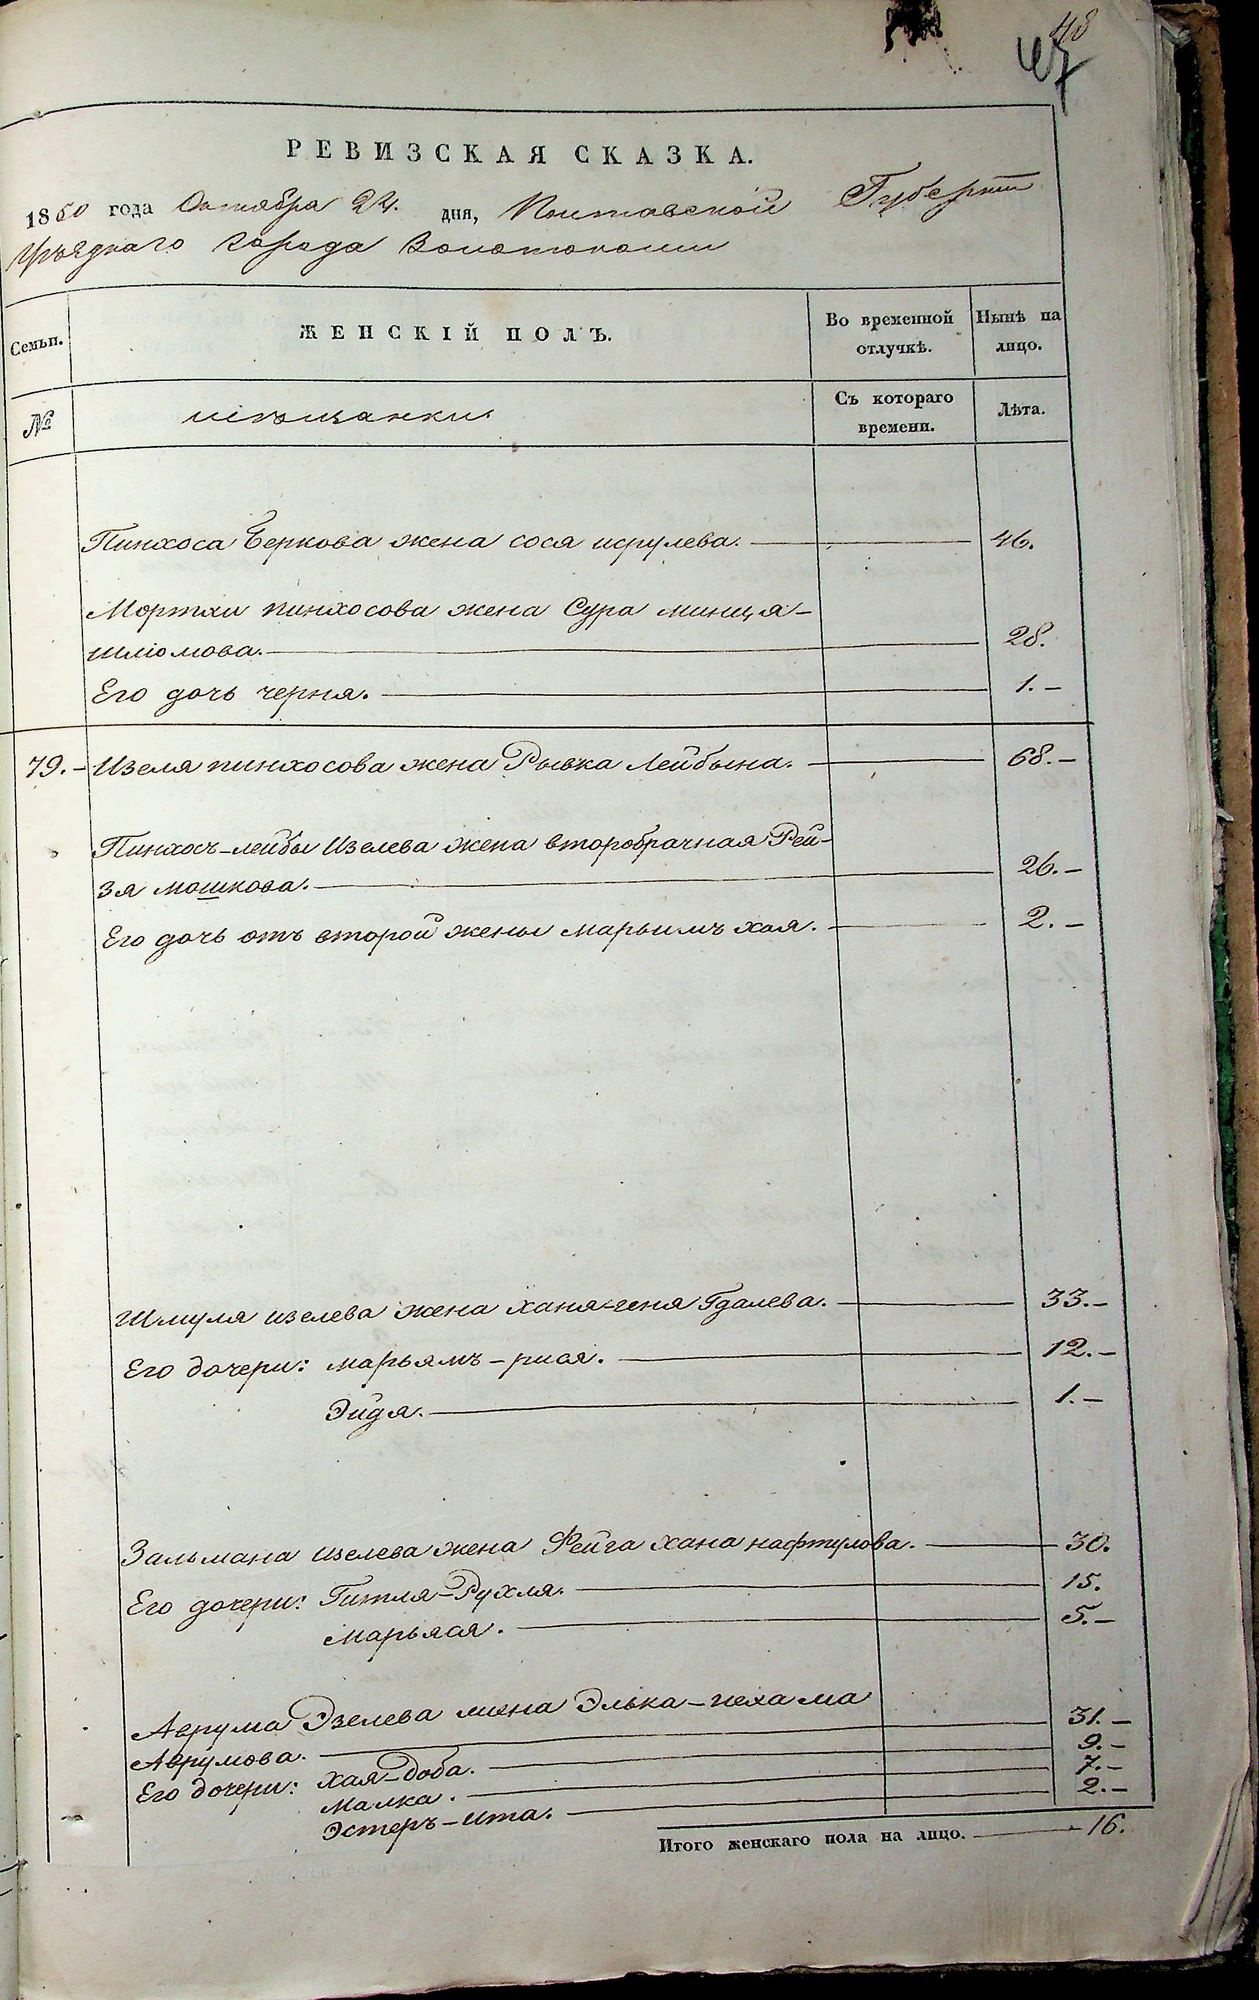 48
47
РЕВИЗСКАЯ СКАЗКА.
1850 года Октября 24. дня, Полтавской Губерніи
Уѣзднаго города Золотоноши
Семьи. ЖЕНСКІЙ ПОЛЪ. Во временной отлучкѣ. Нынѣ на лицо.
№ мѣщанки. Съ котораго времени. Лѣта.
Пинхоса Беркова жена сося исрулева. 46.
Мортхи пинхосова жена Сура минця-
шліомова. 28.
Его дочь черня. 1.-
79.- Изеля пинхосова жена Рывка Лейбына. 68.-
Пинхосъ-лейбы Изелева жена второбрачная Рей-
зя мошкова. 26.-
Его дочь отъ второй жены марьимъ хая. 2.-
Шмуля изелева жена ханя-геня Гдалева. 33.-
Его дочери: марьямъ-рися. 12.-
Эйдя. 1.-
Зальмана изелева жена Фейга хана нафтулова. 30.
Его дочери: Гитля-Рухля. 15.
марьяся. 5.-
Аврума Эзелева жена Элька-нехама
Аврумова. 31.-
Его дочери: хая-доба. 9.-
малка. 7.-
эстеръ-ита. 2.-
Итого женскаго пола на лицо. 16.